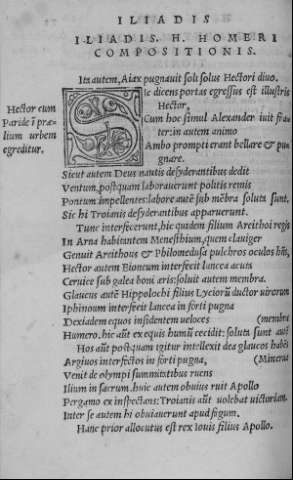 ILIADIS
ILIADIS. H. HOMERI
COMPOSITIONIS.
Ita autem, Aiax pugnauit soli solus Hectori diuo.
Hector cum
Paride ĩ præ-
lium urbem
egreditur.
Sic dicens portas egressus est illustris
Hector,
Cum hoc simul Alexander iuit fra-
ter: in autem animo
Ambo prompti erant bellare & pu
gnare.
Sicut autem Deus nautis desyderantibus dedit
Ventum, postquam laborauerunt politis remis
Pontum impellentes: labore autẽ sub mẽbra soluta sunt.
Sic hi Troianis desyderantibus apparuerunt.
Tunc interfecerunt, hic quidem filium Areithoi regis
In Arna habitantem Menesthium, quem clauiger
Genuit Areithous & Philomedusa pulchros oculos hñs,
Hector autem Eioneum interfecit lancea acuta
Ceruice sub galea boni æris: soluit autem membra.
Glaucus autẽ Hippolochi filius Lyciorũ ductor uirorum
Iphinoum interfecit lancea in forti pugna
Dexiadem equos insidentem ueloces (membra
Humero. hic aũt ex equis humũ cecidit: soluta sunt aũt
Hos aũt postquam igitur intellexit dea glaucos habẽs
Argiuos interfectos in forti pugna, (Minerua
Venit de olympi summitatibus ruens
Ilium in sacrum. huic autem obuius ruit Apollo
Pergamo ex inspectans: Troianis aũt uolebat uictoriam.
Inter se autem hi obuiauerunt apud fagum.
Hanc prior allocutus est rex Iouis filius Apollo.